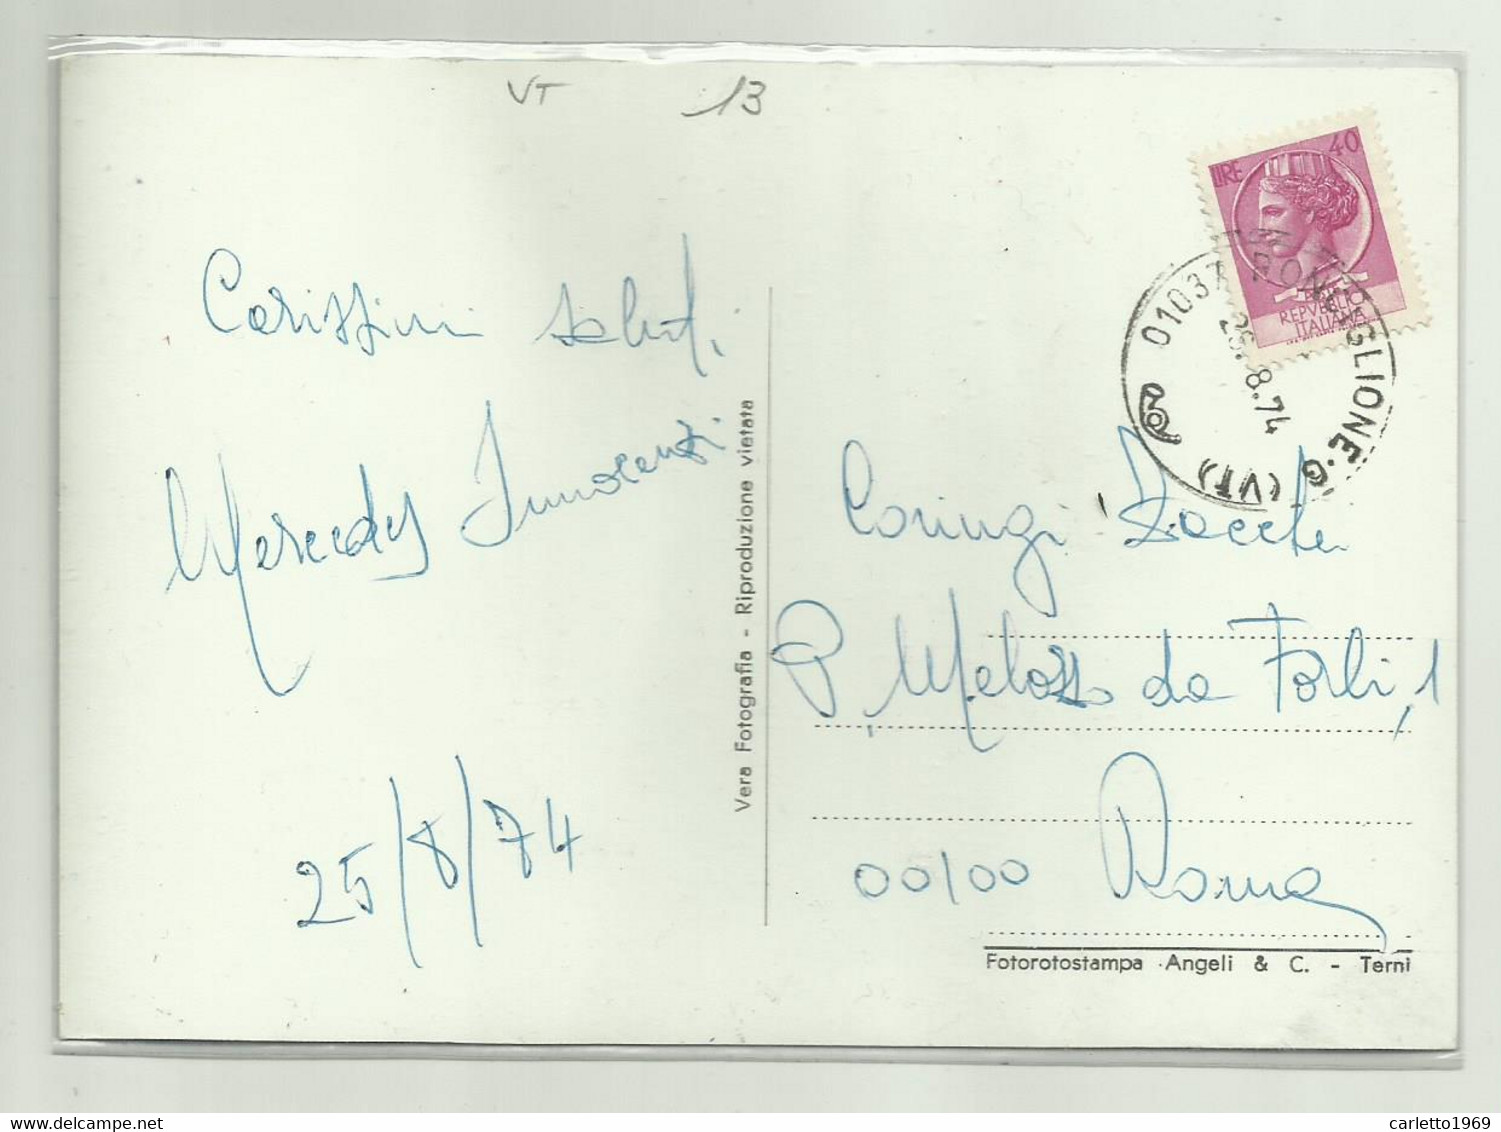 VT 13
LIRE 40
REPVBBLICA
ITALIANA
01037 RONCIGLIONE·G (VT)
26.8.74
Carissimi saluti
Mercedes Innocenzi
25/8/74
Vera Fotografia - Riproduzione vietata
Coniugi
P. Melozzo da Forlì, 1
00100 Roma
Fotorotostampa Angeli & C. - Terni
carletto1969